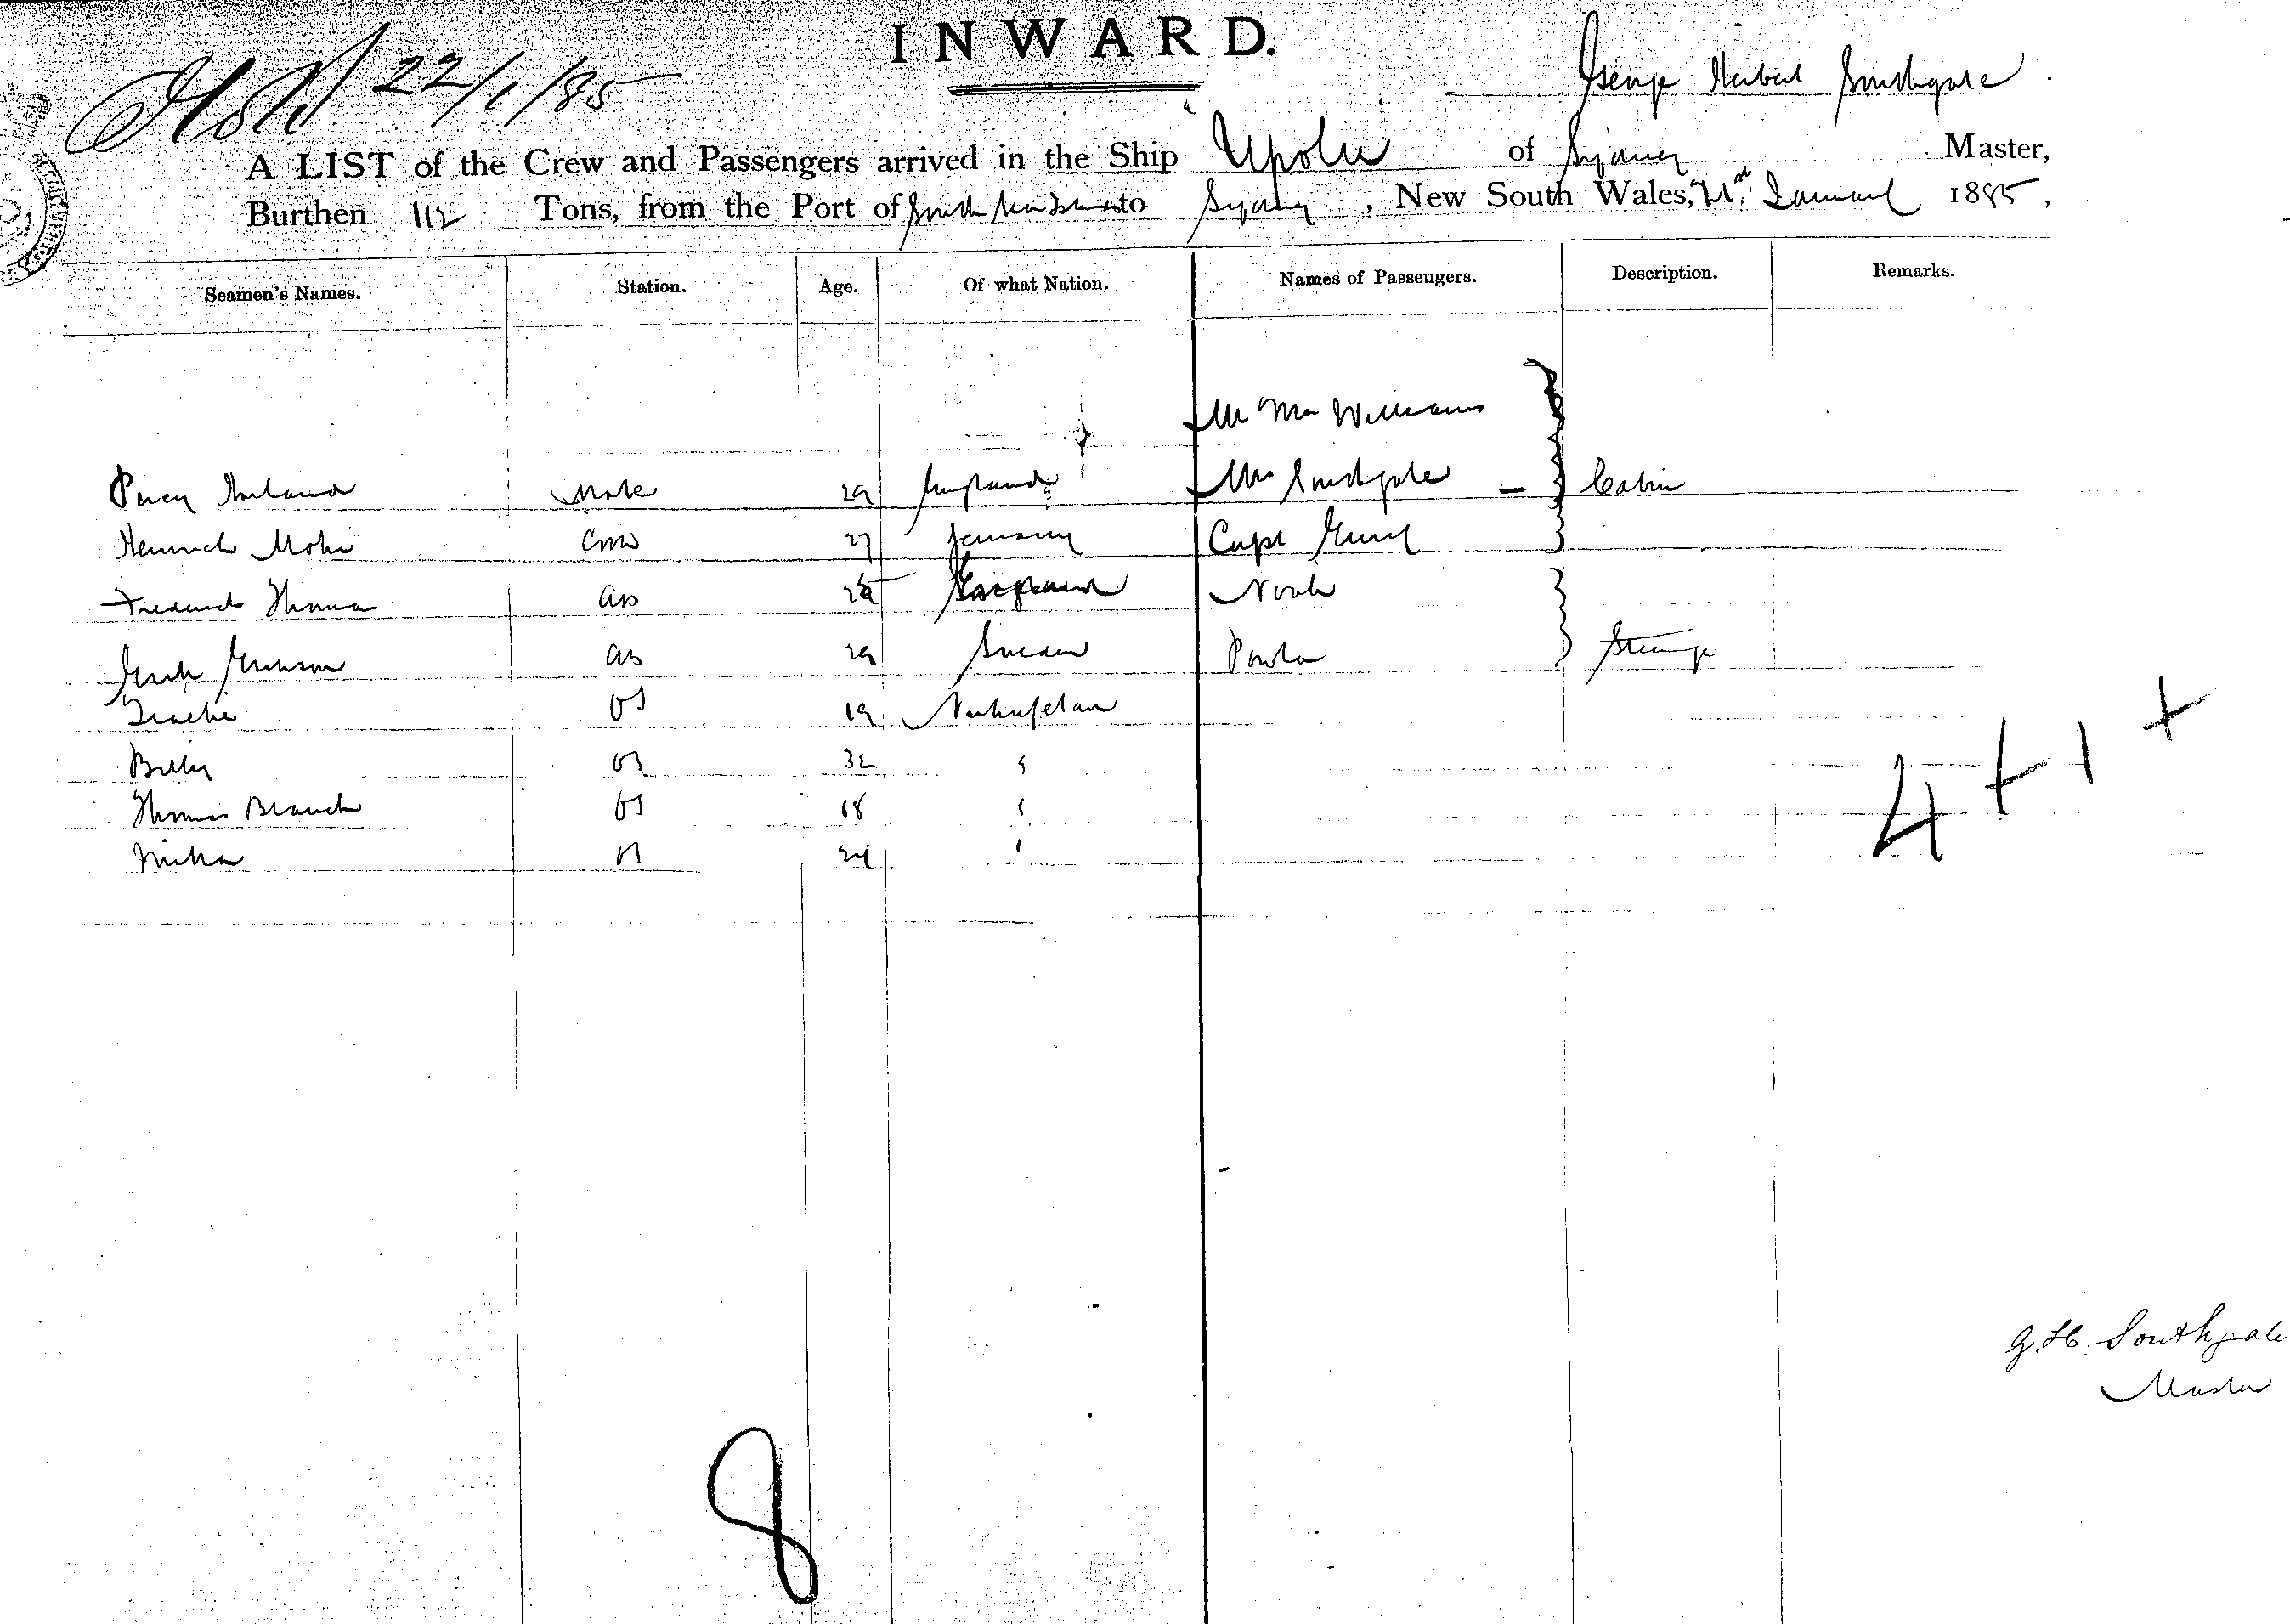 INWARD.
22/1/85
George Herbert Southgate
A LIST of the Crew and Passengers arrived in the Ship "Upolu of Sydney Master,
Burthen 112 Tons, from the Port of South Sea Islands to Sydney, New South Wales, 21st January 1885,
Seamen's Names. Station. Age. Of what Nation. Names of Passengers. Description. Remarks.
Williams
Percy Mate 29 England Mrs Southgate Cabin
Heinrich Mohr Cook 27 Germany Capt
Frederick Thomas AB 25 England Noah
AB 29 Sweden Steerage
OS 19
Billy OS 32 "
Thomas Branch OS 18 "
OS 24 "
4 + 1 +
G. H. Southgate
Master
8